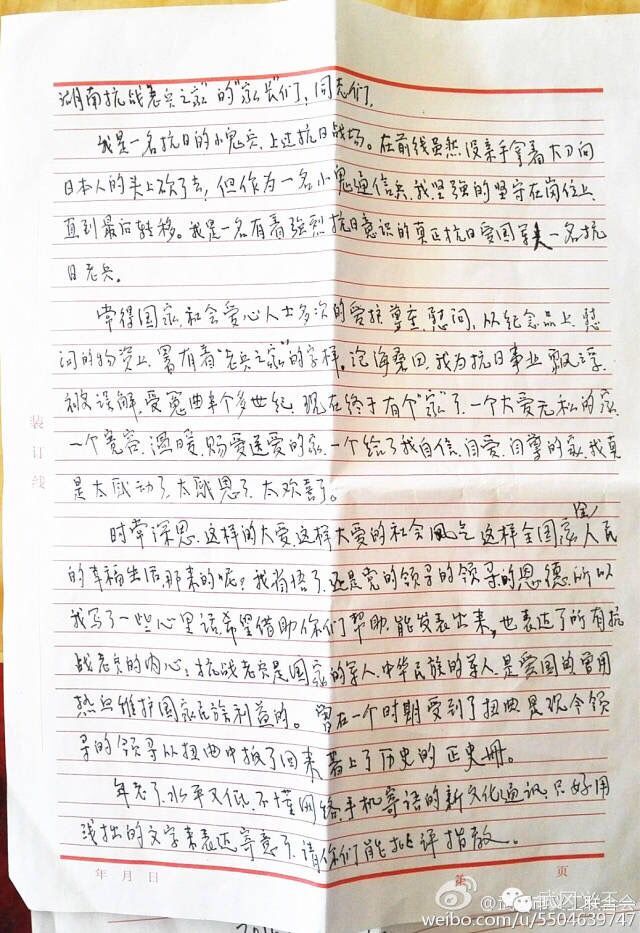 湖南抗战"老兵之家"的"家长"们，同志们，
我是一名抗日的小鬼兵，上过抗日战场。在前线虽然没亲手拿着大刀向
日本人的头上砍了去，但作为一名小鬼通信兵，我坚强的坚守在岗位上，
直到最后转移。我是一名有着强烈抗日意识的真正抗日爱国军人一名抗
日老兵。
常得国家、社会爱心人士多次的爱护、尊重、慰问，从纪念品上、慰
问的物资上，署有着"老兵之家"的字样。沧海桑田，我为抗日事业飘浮，
被误解，受冤曲半个多世纪，现在终于有个"家"了，一个大爱无私的家，
一个宽容、温暖、赐爱送爱的家，一个给了我自信、自爱、自尊的家，我真
是太感动了，太感恩了，太欢喜了。
时常深思，这样的大爱，这样大爱的社会风气，这样全国家人民
的幸福生活那来的呢？我省悟了，还是党的领导的领导的恩德，所以
我写了一些心里话希望借助你们帮助，能发表出来，也表达了所有抗
战老兵的内心：抗战老兵是国家的军人，中华民族的军人，是爱国的曾用
热血维护国家民族利益的。曾在一个时期受到了扭曲，是现今领
导的领导从扭曲中扳了回来，著上了历史的正史册。
年老了，水平又低，不懂网络、手机寄语的新文化通讯，只好用
浅拙的文字来表达寄意了，请你们能批评指教。
装订线
年 月 日
第 页
weibo.com/u/5504639747